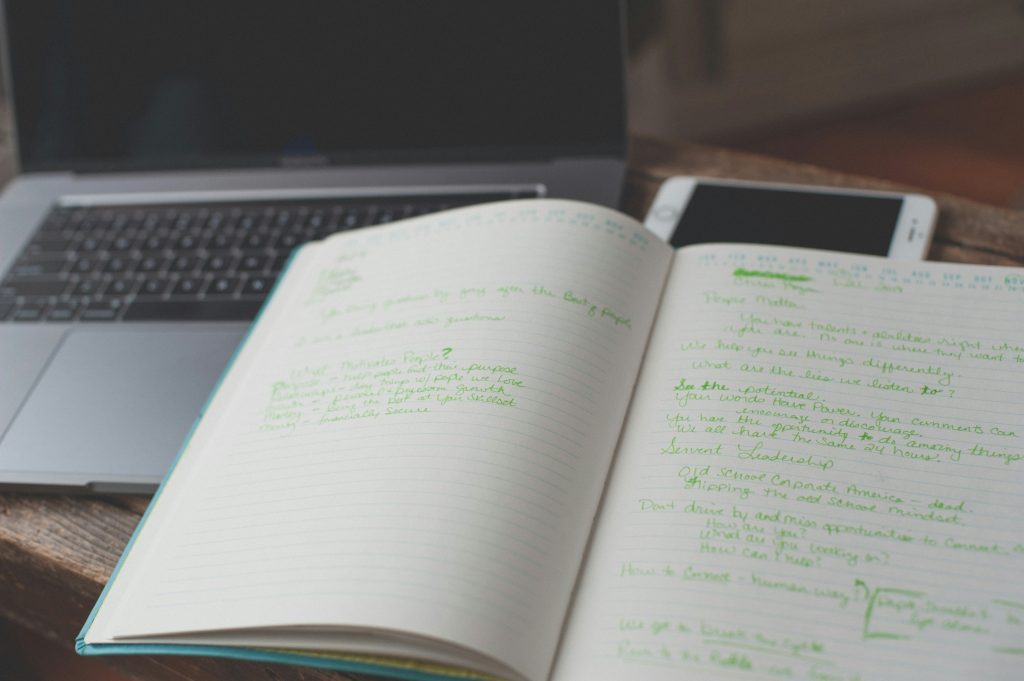 You bring greatness by going after the Best of People
What Motivates People?
Purpose - help people find their purpose
Relationships - doing things w/ people we love
personal growth
Mastery - Being the Best at your skillset
Money - financially secure
JAN FEB MAR APR MAY JUN JUL AUG SEP OCT NOV
People Matter
You have talents + abilities right where
you are. No one is where they want to
We help you see things differently.
What are the lies we listen to?
See the potential.
Your words Have Power. Your comments can
encourage or discourage.
You have the opportunity to do amazing things
We all have the same 24 hours.
Servent Leadership
Old School Corporate America - dead.
Shipping the old school mindset.
Don't drive by and miss opportunities to connect
How are you?
What are you looking in?
How can I help?
How to Connect - human way?
We get to break the cycle